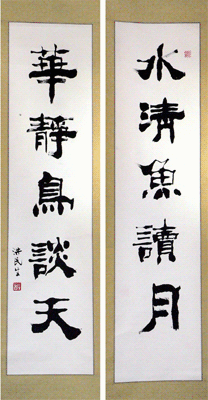 水清魚讀月
華靜鳥談天